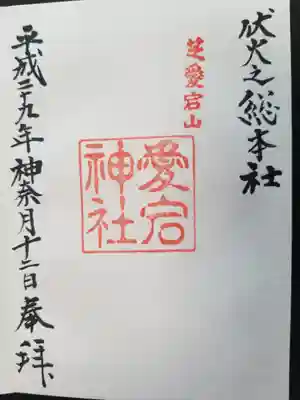 伏火之総本社
芝愛宕山
愛宕神社
平成二十九年神奈月十二日奉拝